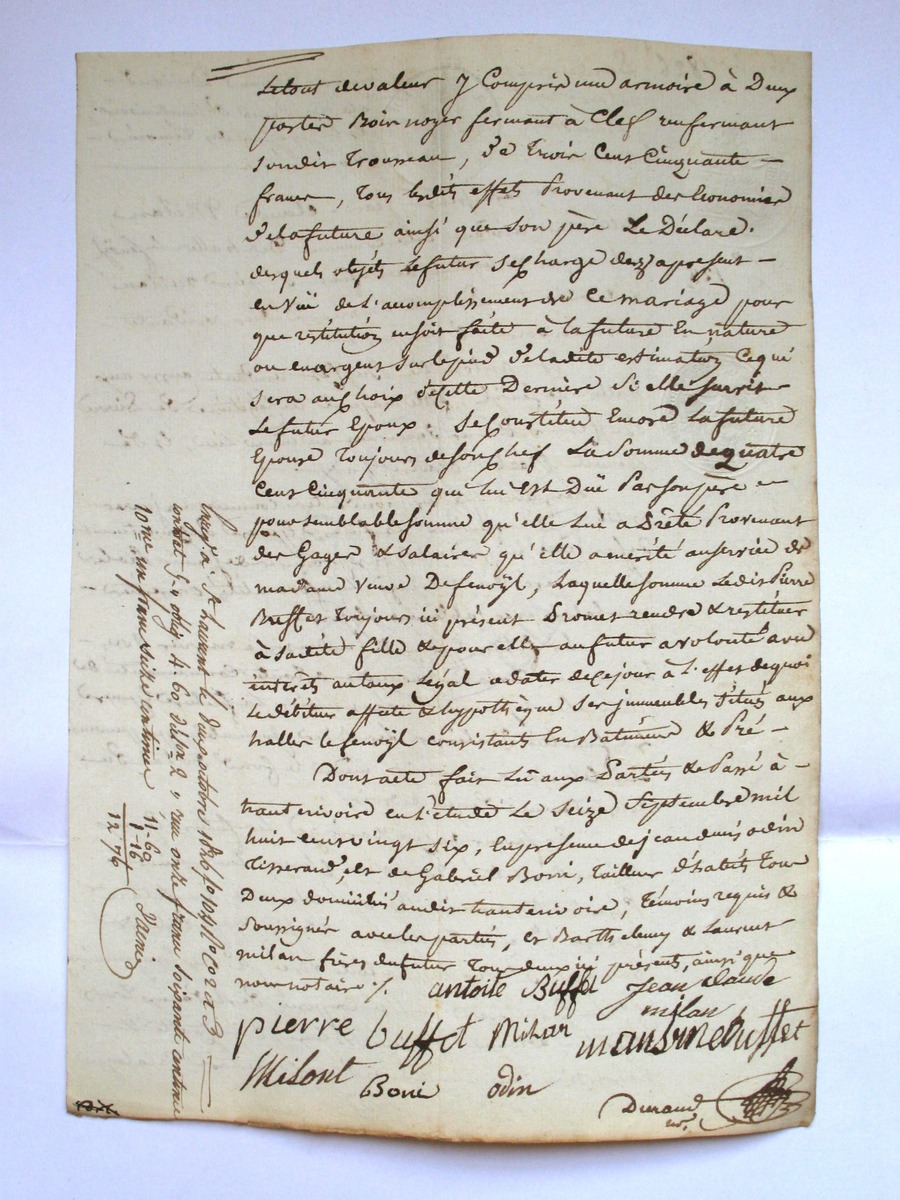 Le tout de valeur y Compris une armoire à Deux
portes Bois noyer fermant à Clef renfermant
Sondit Trousseau, de Trois Cent Cinquante
francs, Tous lesdits effets Provenant des Economies
de la future ainsi que Son père Le Déclare.
desquels objets Le futur se charge des apresent
en Vuë de L'accomplissement de Ce mariage pour
que restitution en soit faite à la future En nature
ou en argent sur le pied de ladite estimation Ce qui
Sera au choix de Cette Derniere Si elle Survit
Le futur Epoux. Se Constitue Encore La future
Epouse Toujours de Son Chef La Somme de quatre
Cent Cinquante qui lui Est Düe Par Son père
pour semblable somme qu'elle Lui a Prêté Provenant
des Gages & Salaires qu'elle a mérité au service de
madame Veuve Defenoÿl, Laquelle Somme Ledit Pierre
Buffet Toujours ici présent Promet rendre & restituer
à Sadite fille & pour elle au futur a volonté avec
interêts au taux Légal a dater de ce jour à L'effet de quoi
Le débiteur affecte & hypothèque Ses immeubles Situés aux
halles le fenoÿl consistants En Batiments & Pré
Dont acte fait Lu aux Parties & Passé à
hauterivoire en L'étude Le Seize Septembre mil
huit cent vingt Six, En presence de jean denis odin
Tisserand, et de Gabriel Borri, Tailleur d'habits Tous
Deux domiciliés audit hauterivoire, Témoins requis &
Soussignés avec les parties, et Barthelemy & Laurent
milan frères du futur Tous deux ici présents, ainsi que
nous notaire /.
antoite Buffet Jean claude
milan
pierre buffet Milan buffet
Milont Borri odin
Durand
nre.
à St Laurent le deux octobre 1826 fo 104 Ro C 2 & 3
5 " oblig. 4. 60 2 " onze francs soixante centimes
10me un franc seize centimes
11-60
1-16
12 76